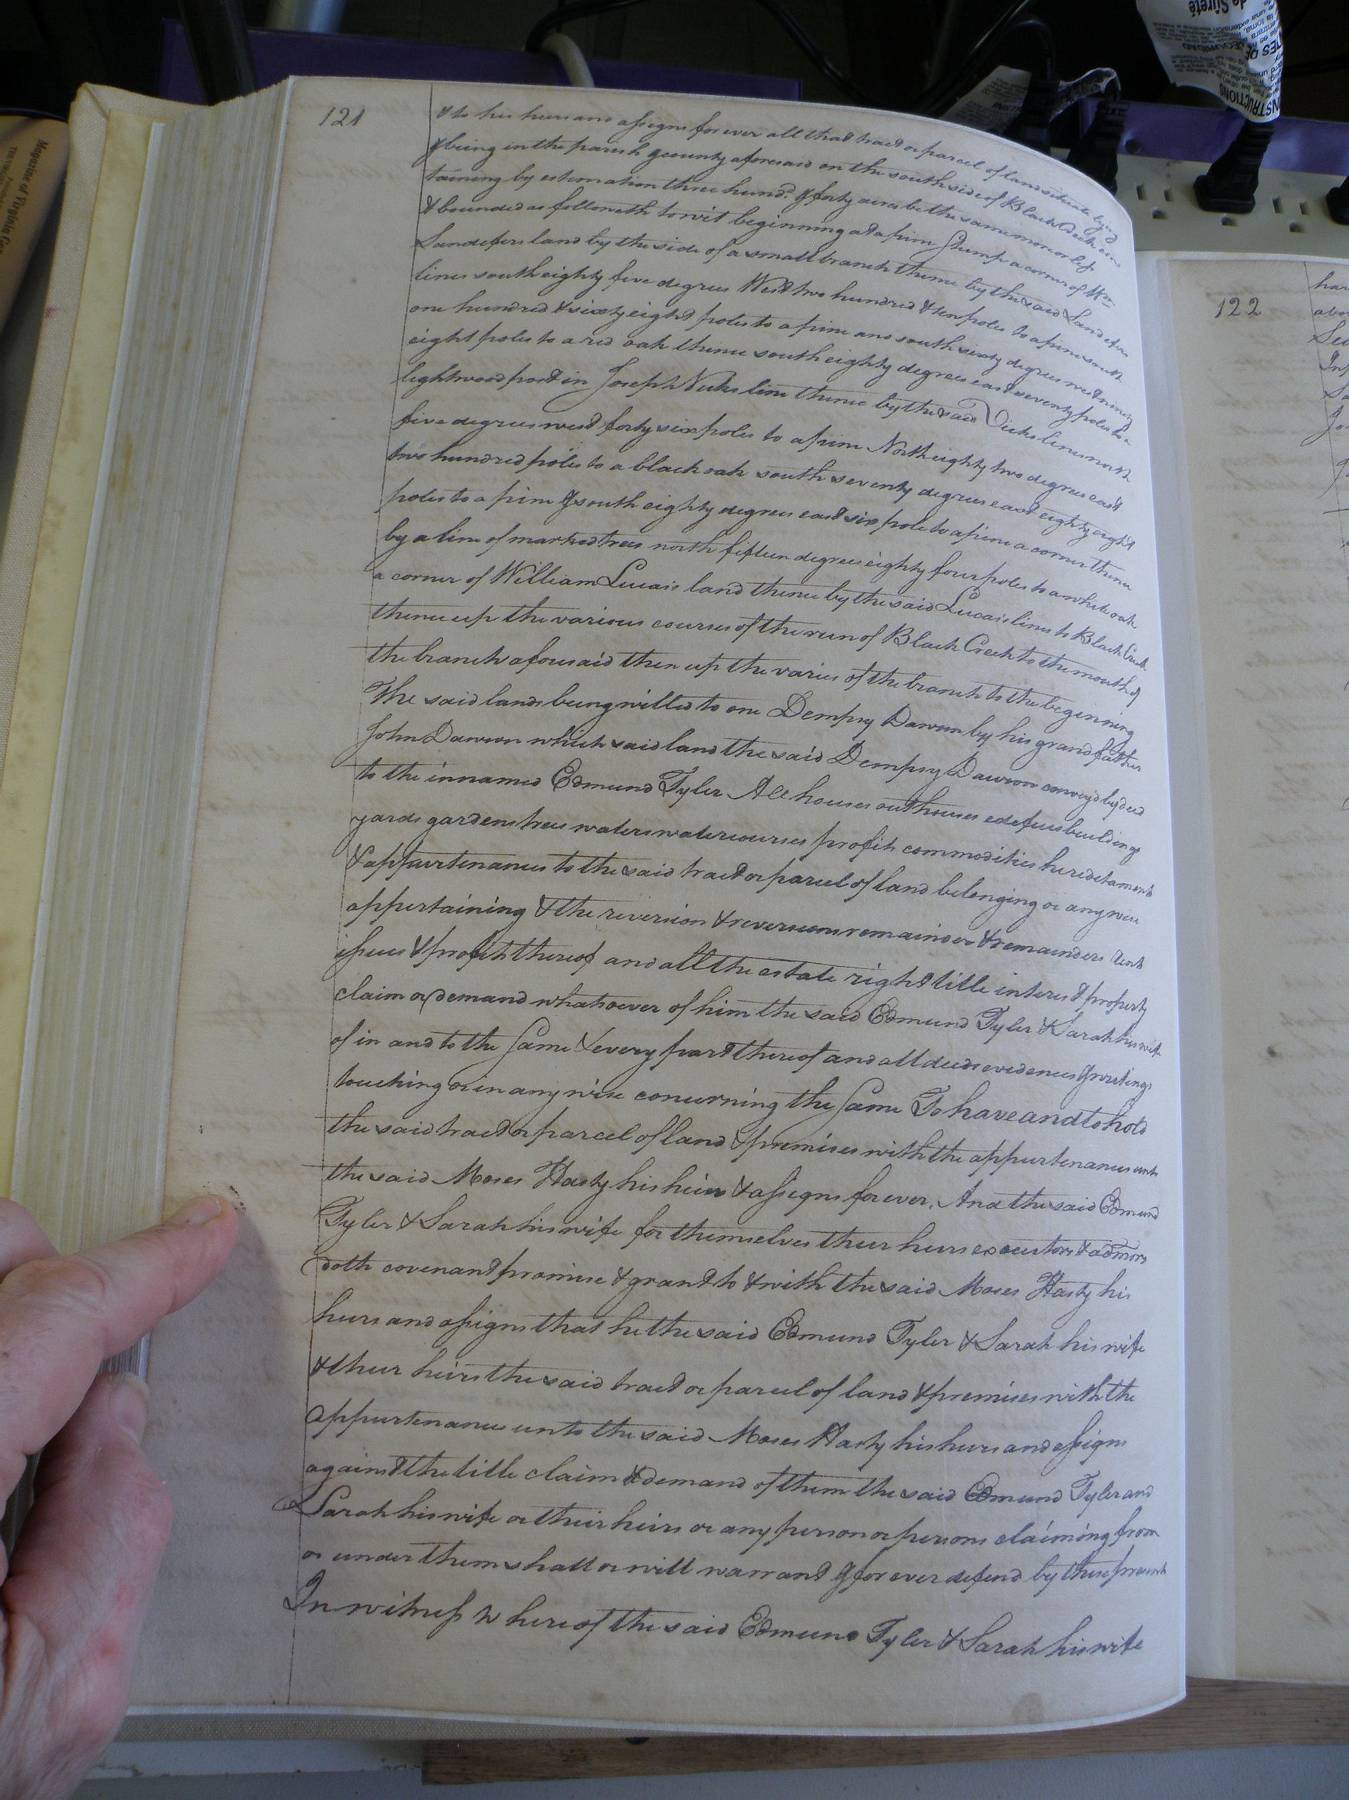 121
& to his heirs and assigns forever all that tract or parcel of land situate lying
& being in the parish & county aforesaid on the south side of Black Creek con
taining by estimation three hund.d & forty acres be the same more or less
& bounded as followeth towit beginning at a pine stump a corner of Wm
Sandefers land by the side of a small branch thence by the said Sandefers
lines south eighty five degrees West two hundred & ten poles to a pine south
one hundred & sixty eight poles to a pine and south sixty degrees west ninety
eight poles to a red oak thence south eighty degrees east seventy poles to a
lightwood post in Joseph Vicks line thence by the said Vicks lines north
five degrees west forty six poles to a pine North eighty two degrees east
two hundred poles to a black oak south seventy degrees east eighty eight
poles to a pine & south eighty degrees east six pole to a pine a corner thence
by a line of marked trees north fifteen degrees eighty four poles to a white oak
a corner of William Lucas's land thence by the said Lucas's lines to Black Creek
thence up the various courses of the run of Black Creek to the mouth of
the branch aforesaid then up the varies of the branch to the beginning
The said lands being willed to one Dempsy Dawson by his grandfather
John Dawson which said land the said Dempsy Dawson convey'd by deed
to the innamed Edmund Tyler All houses outhouses edefices buildings
yards gardens trees waters watercourses profits commodities heredetaments
& appurtenances to the said tract or parcel of land belonging or any wise
appertaining & the reversion & reversions remainder & remainders rents
issues & profits thereof and all the estate right title interest property
claim or demand whatsoever of him the said Edmund Tyler & Sarah his wife
of in and to the same & every part thereof and all deeds evidences & writings
touching or in any wise concerning the same To have and to hold
the said tract or parcel of land & premises with the appurtenances unto
the said Moses Hasty his heirs & assigns forever. And the said Edmund
Tyler & Sarah his wife for themselves their heirs executors & admors
doth covenant promise & grant to & with the said Moses Hasty his
heirs and assigns that he the said Edmund Tyler & Sarah his wife
& their heirs the said tract or parcel of land & premises with the
appurtenances unto the said Moses Hasty his heirs and assigns
against the title claim & demand of them the said Edmund Tyler and
Sarah his wife or their heirs or any person or persons claiming from
or under them shall or will warrant & forever defend by these presents
In witness Whereof the said Edmund Tyler & Sarah his wife
122
Magazine of Virginia
INSTRUCTIONS
de Sûreté